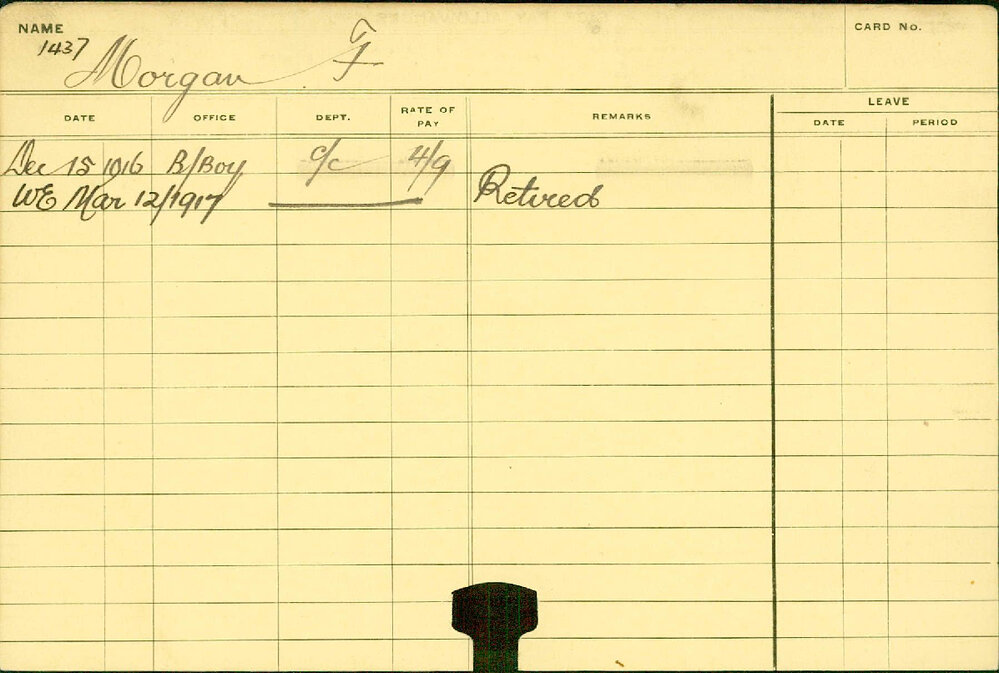 NAME CARD No.
1437
Morgan F
DATE OFFICE DEPT. RATE OF PAY REMARKS LEAVE
DATE PERIOD
Dec 15 1916 B/Boy c/c 4/9
WE Mar 12/1917 Retired